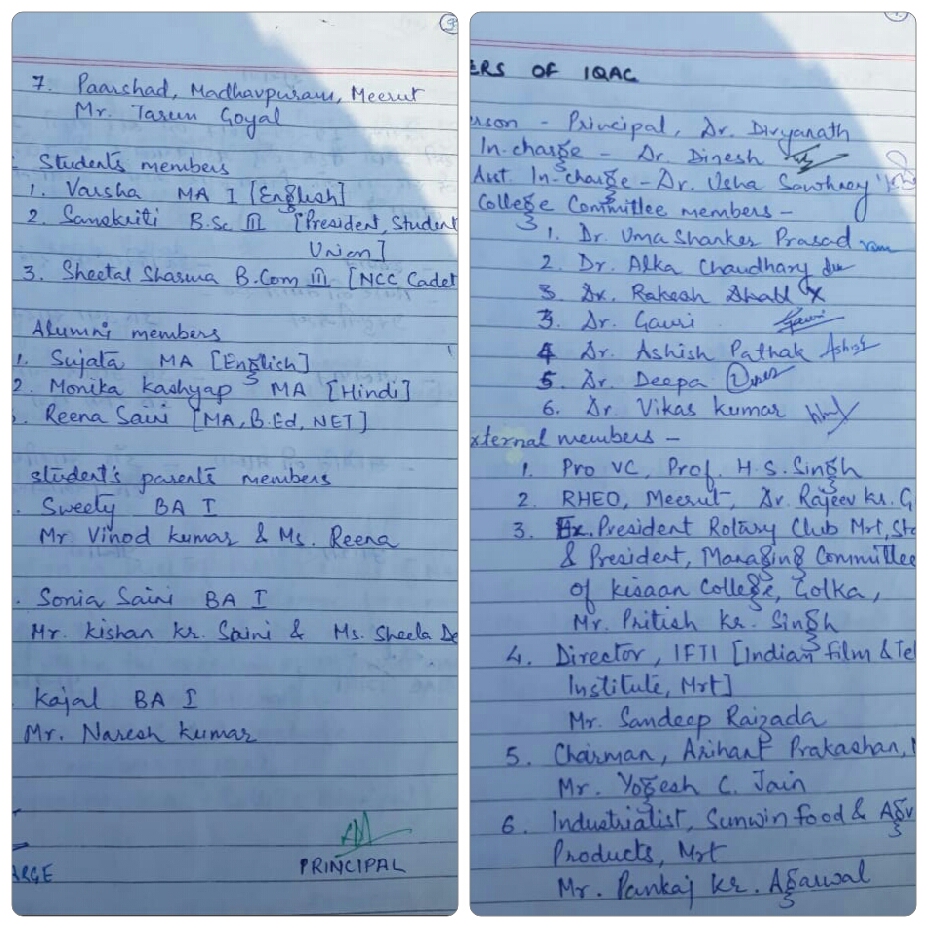 7. Paarshad, Madhavpuram, Meerut
Mr. Tarun Goyal
Students members
1. Varsha MA I [English]
2. Samskriti B.Sc III [President, Student
Union]
3. Sheetal Sharma B.Com III [NCC Cadet
Alumni members
1. Sujata MA [English]
2. Monika Kashyap MA [Hindi]
Reena Saini [MA, B.Ed, NET]
student's parents members
Sweety BA I
Mr Vinod kumar & Ms. Reena
Sonia Saini BA I
Mr. Kishan Kr. Saini & Ms. Sheela De
Kajal BA I
Mr. Naresh Kumar
ARGE PRINCIPAL
ERS OF IQAC
erson - Principal, Dr. Divyanath
In. charge - Dr. Dinesh
Asst. In-charge - Dr. Usha Sawhney
College Committee members -
1. Dr. Uma Shanker Prasad
2. Dr. Alka Chaudhary
3. Dr. Rakesh Dhall X
3. Dr. Gauri Gauri
4 Dr. Ashish Pathak Ashish
5. Dr. Deepa
6. Dr. Vikas Kumar
xternal members -
1. Pro VC, Prof. H.S. Singh
2. RHEO, Meerut, Dr. Rajeev Kr. G
3. Ex. President Rotary Club Mrt, Sta
& President, Managing Committee
of Kisaan College, Golka,
Mr. Pritish Kr. Singh
4. Director, IFTI [Indian Film & Tel
Institute, Mrt]
Mr. Sandeep Raizada
5. Chairman, Arihant Prakashan,
Mr. Yogesh C. Jain
6. Industrialist, Sunwin Food & Agr
Products, Mrt
Mr. Pankaj Kr. Agarwal